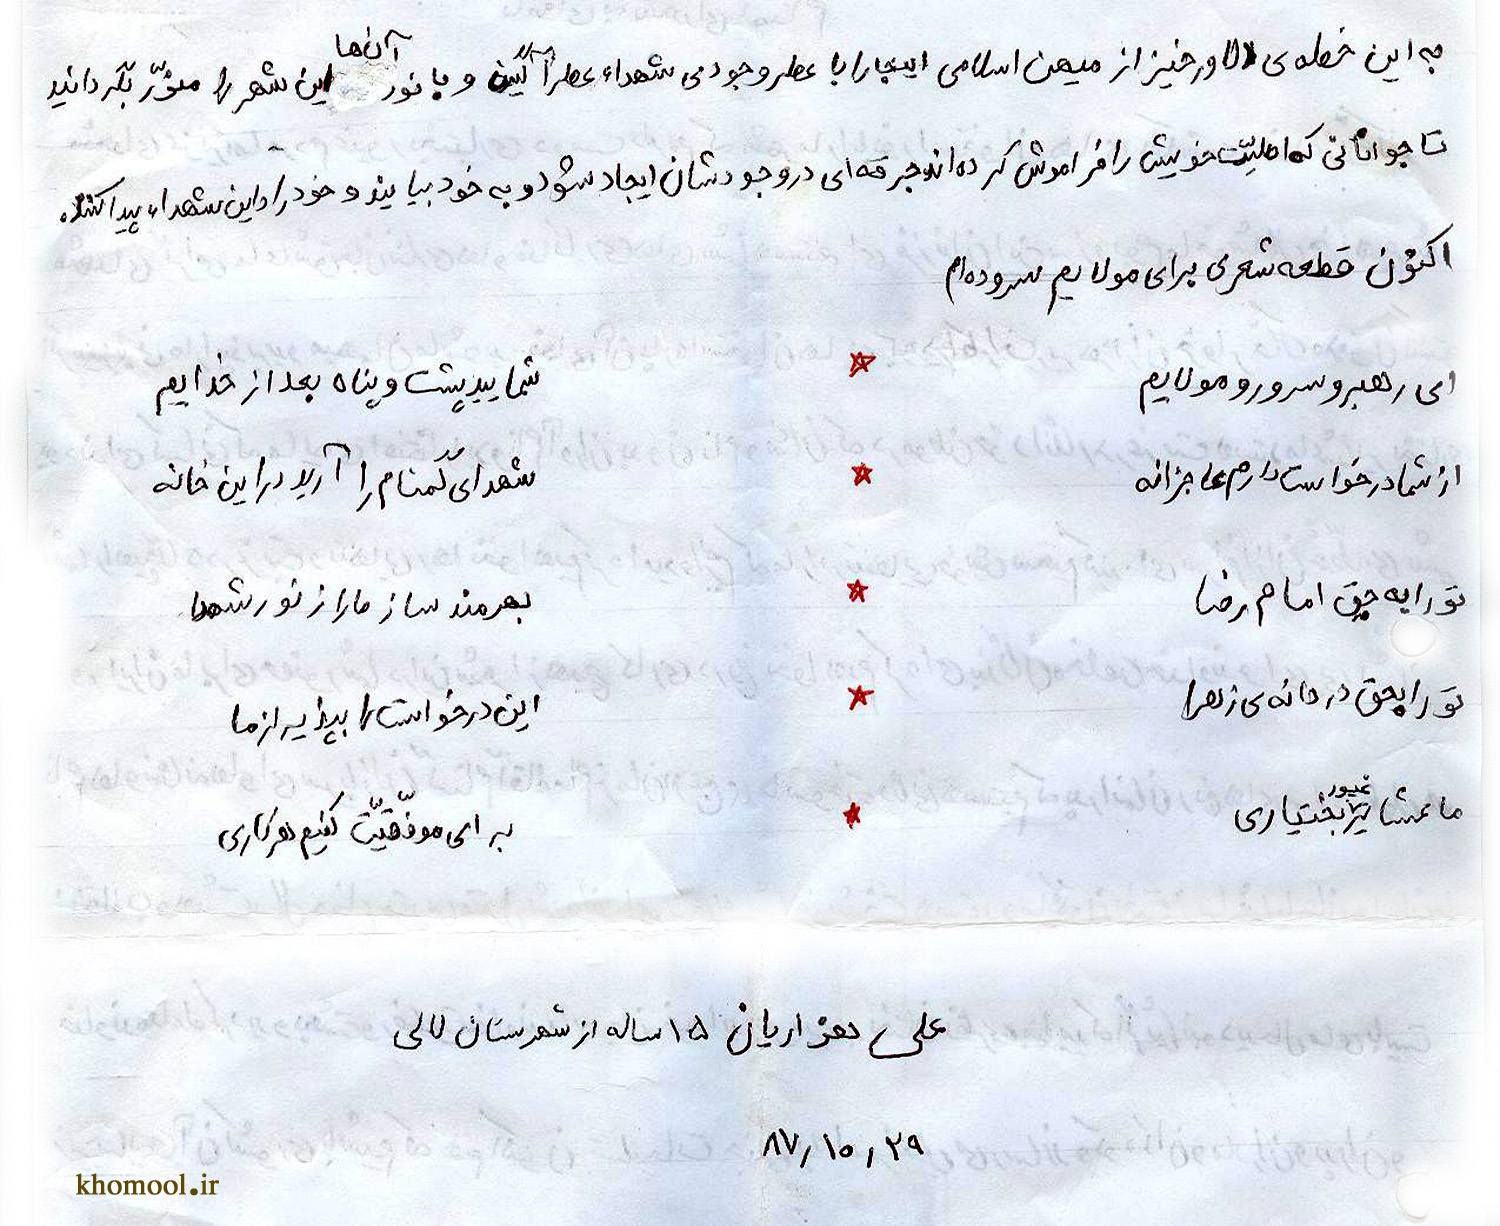 به این خطه‌ی دلاورخیز از میهن اسلامی اینجا را با عطر وجودی شهداء عطرآگین و با نور آن‌ها این شهر را منوّر بگردانید
تا جوانانی که اصلیّت خویش را فراموش کرده‌اند جرقه‌ای در وجودشان ایجاد شود و به خود بیایند و خود را با این شهداء پیدا کنند.
اکنون قطعه شعری برای مولایم سروده‌ام
ای رهبر و سرور و مولایم ☆ شمایید پشت و پناه بعد از خدایم
از شما درخواست دارم عاجزانه ☆ شهدای گُمنام را آرید در این خانه
تو را به حق امام رضا ☆ بهرمند ساز ما را از نور شهدا
تو را بحق دردانه‌ی زهرا ☆ این درخواست را بپذیر از ما
ما عشایر غیور بختیاری ☆ برای موفّقیّت کنیم هر کاری
علی هزاریان ۱۵ ساله از شهرستان لالی
۸۷٫۱۰٫۲۹
khomool.ir